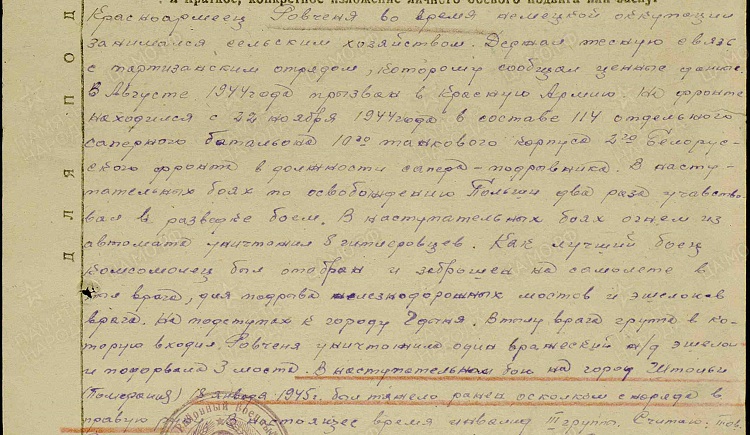 и краткое, конкретное изложение личного боевого подвига или заслуг.
Красноармеец Ровченя во время немецкой оккупации
занимался сельским хозяйством. Держал тесную связь
с партизанским отрядом, которому сообщал ценные данные.
В Августе 1944 года призван в Красную Армию. На фронте
находился с 22 ноября 1944 года в составе 114 отдельного
саперного батальона 10го танкового корпуса 2го Белорус-
ского фронта в должности сапера-подрывника. В насту-
пательных боях по освобождению Польши два раза учавство-
вал в разведке боем. В наступательных боях огнем из
автомата уничтожил 8 гитлеровцев. Как лучший боец
комсомолец был отобран и заброшен на самолете в
тыл врага, для подрыва железнодорожных мостов и эшелонов
врага. На подступах к городу Гдыня. В тылу врага группа в ко-
торую входил Ровченя уничтожила один вражеский ж/д эшелон
и подорвала 3 моста. В наступательном бою на город Штольп
(Померания) января 1945г. был тяжело ранен осколком снаряда в
правую В настоящее время инвалид III групп. Считаю: тов.
ДЛЯ ПОД